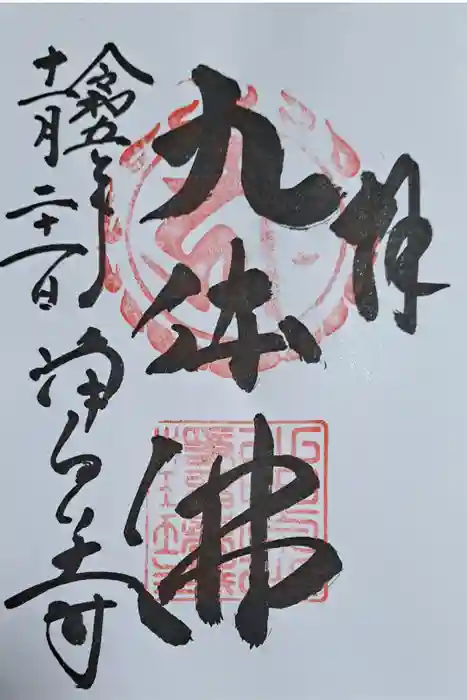 拝
九体佛
令和五年
十一月二十一日
浄る寺